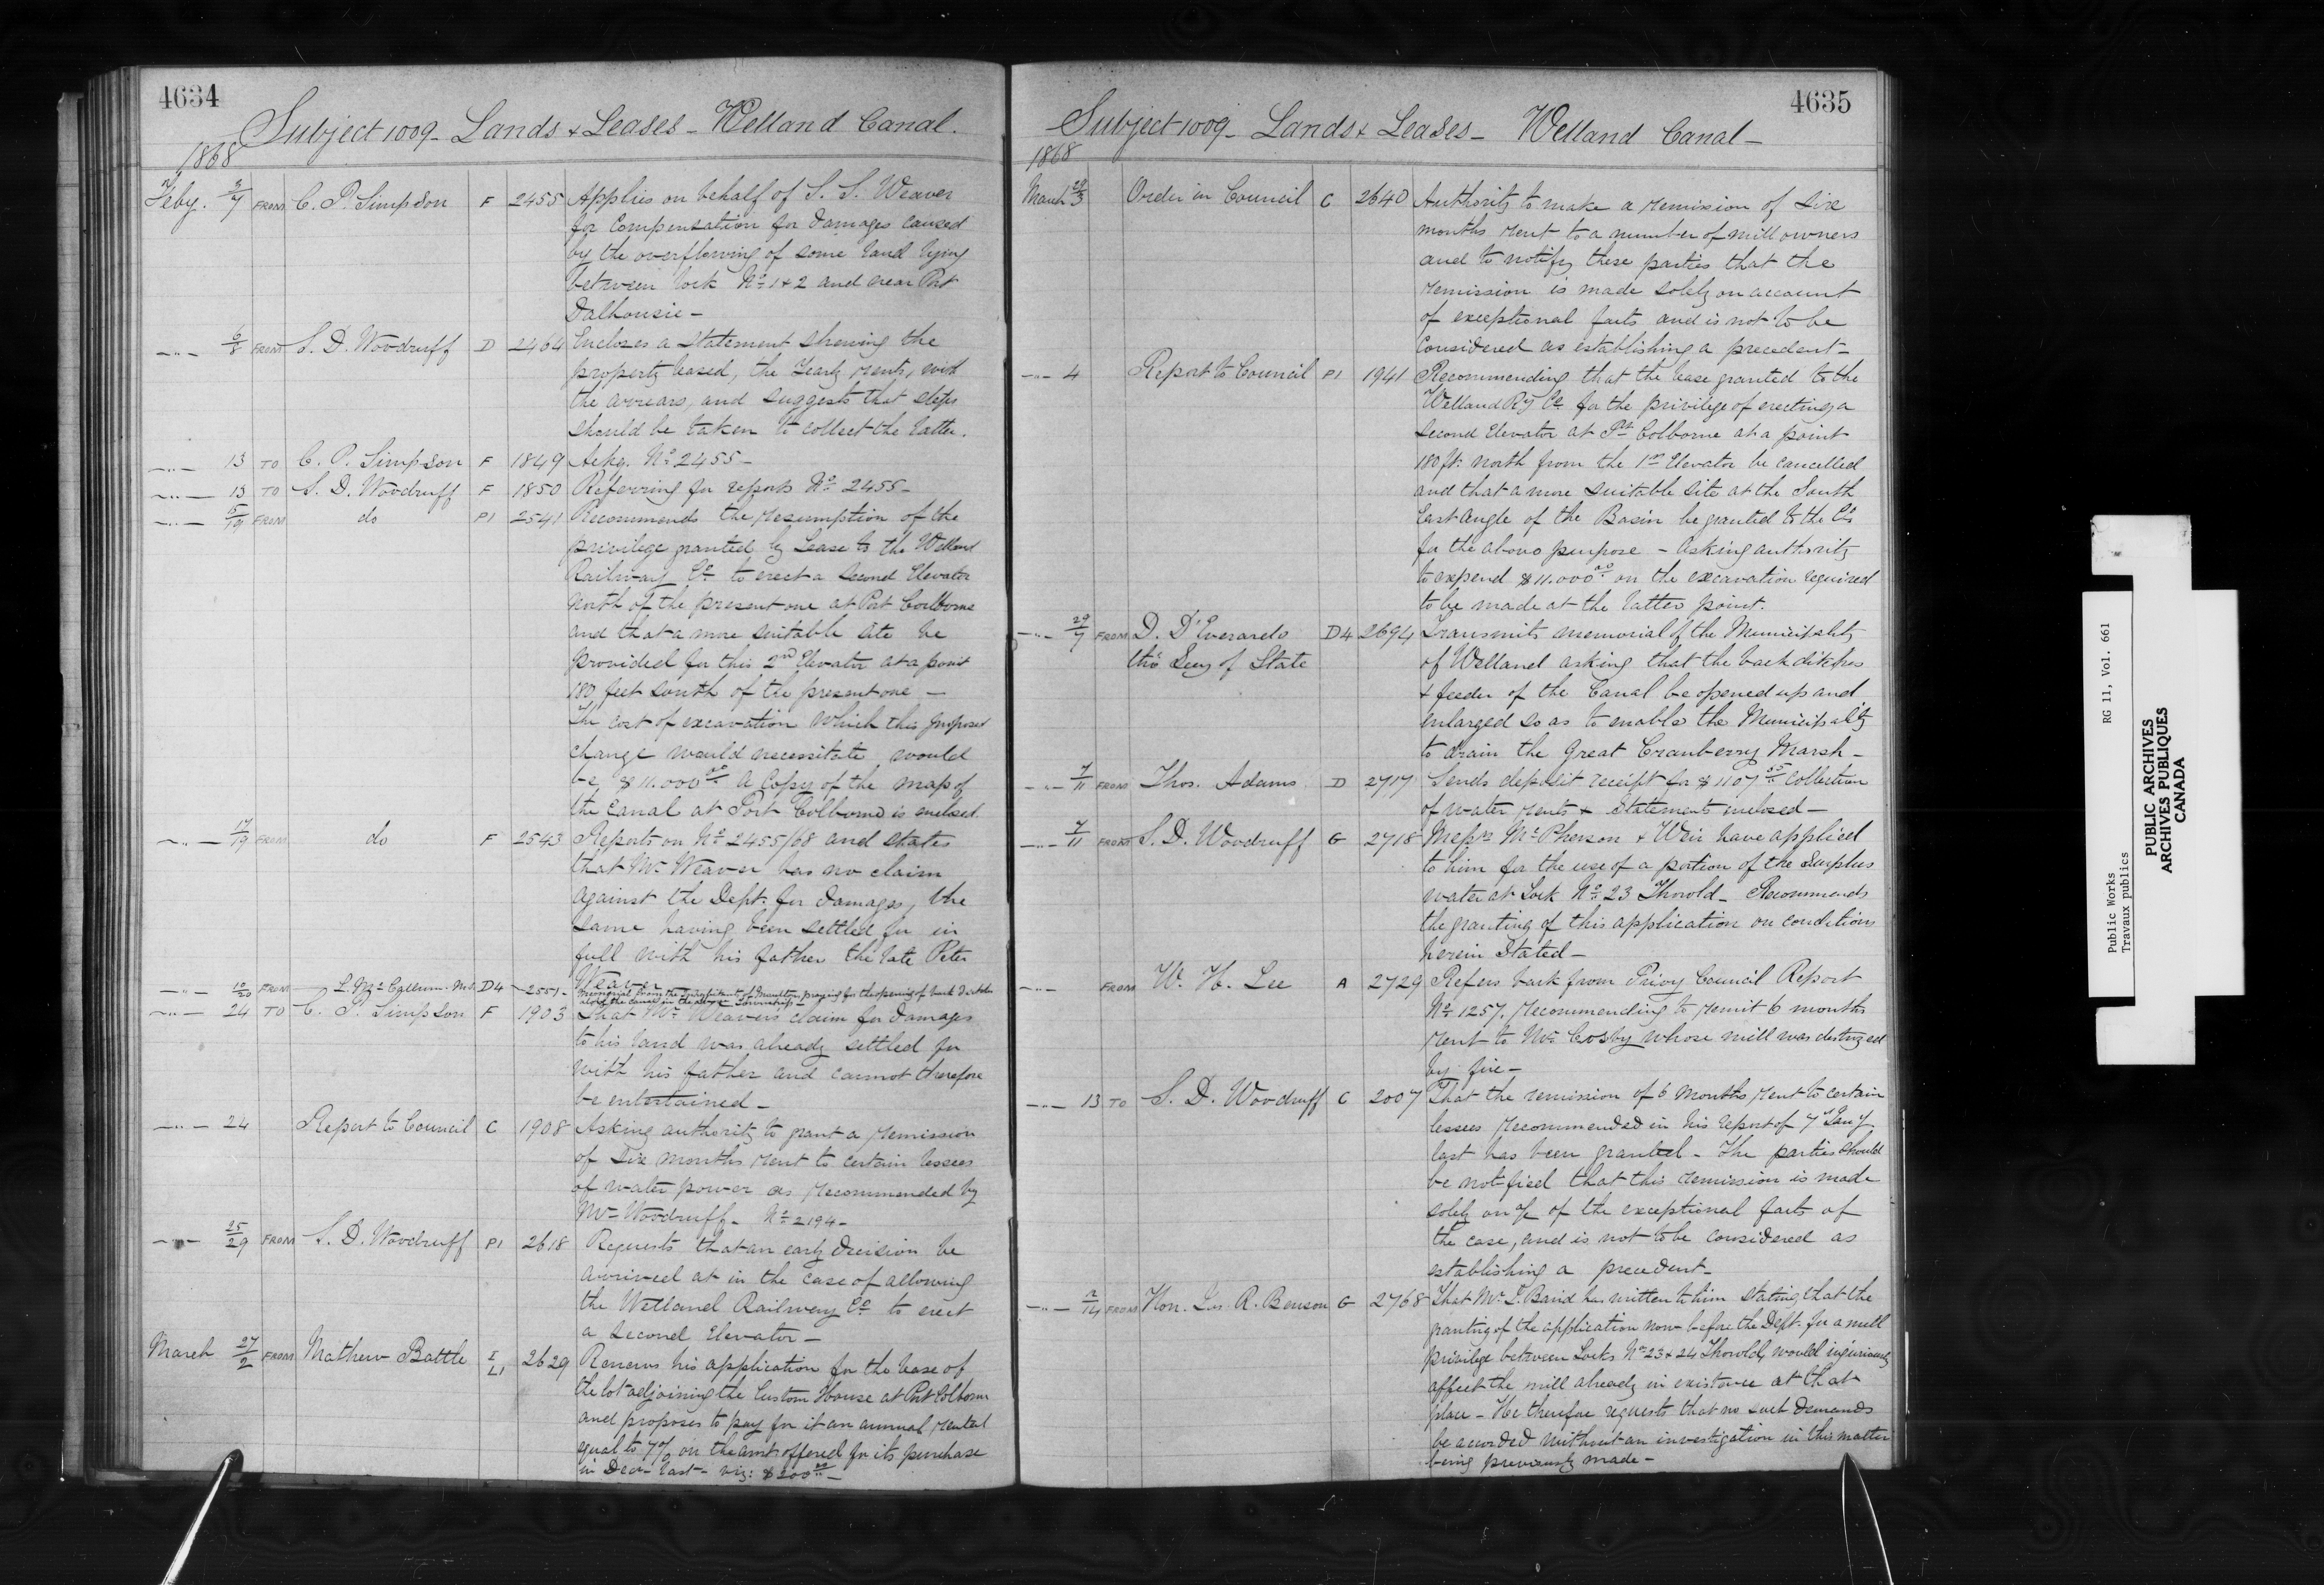 4634
Subject 1009 - Lands & Leases - Welland Canal.
1868
Feby. 3/7 FROM C. P. Simpson F 2455 Applies on behalf of S. S. Weaver
for Compensation for damages caused
by the overflowing of some land lying
between lock No. 1 & 2 and near Port
Dalhousie -
-"- 6/8 FROM S. D. Woodruff D 2464 Encloses a statement shewing the
property leased, the Yearly rents, with
the arrears, and suggests that steps
should be taken to collect the latter.
-"- 13 TO C. P. Simpson F 1849 Ackg. No. 2455 -
-"- 13 TO S. D. Woodruff F 1850 Referring for report No. 2455 -
-"- 15/19 FROM do P1 2541 Recommends the resumption of the
privilege granted by Lease to the Welland
Railway Co. to erect a second Elevator
North of the present one at Port Colborne
and that a more suitable site be
provided for this 2nd Elevator at a point
180 feet south of the present one -
The cost of excavation which this proposed
change would necessitate would
be $11.000 00 A Copy of the map of
the Canal at Port Colborne is enclosed.
-"- 17/19 FROM do F 2543 Reports on No. 2455/68 and states
that Mr. Weaver has no claim
against the Dept. for damages, the
same having been settled for in
full with his father the late Peter
Weaver
-"- 10/20 FROM L. McCallum M.P. D4 2551 - Memorial from the inhabitants of Moulton praying for the opening of back ditches
along the canal in the above Township -
-"- 24 TO C. P. Simpson F 1903 That Mr. Weaver's claim for damages
to his land was already settled for
with his father and cannot therefore
be entertained -
-"- 24 Report to Council C 1908 Asking authority to grant a remission
of Six months rent to certain lessees
of water power as recommended by
Mr. Woodruff - No. 2194 -
-"- 25/29 FROM S. D. Woodruff P1 2618 Requests that an early decision be
arrived at in the case of allowing
the Welland Railway Co. to erect
a second Elevator -
March 27/2 FROM Mathew Battle I L1 2629 Renews his application for the lease of
the lot adjoining the Custom House at Port Colborne
and proposes to pay for it an annual rental
equal to 7% on the amt. offered for its purchase
in Decr. last - viz: $200 00 -
4635
Subject 1009 - Lands & Leases - Welland Canal -
1868
March 29/3 Order in Council C 2640 Authority to make a remission of Six
months rent to a number of mill owners
and to notify these parties that the
remission is made solely on account
of exceptional facts and is not to be
Considered as establishing a precedent -
-"- 4 Report to Council P1 1941 Recommending that the lease granted to the
Welland Ry Co. for the privilege of erecting a
second Elevator at Pt. Colborne at a point
180 ft. north from the 1st Elevator be cancelled
and that a more suitable site at the South
East angle of the Basin be granted to the Co.
for the above purpose - Asking authority
to expend $11.000 00 on the excavation required
to be made at the latter point.
-"- 29/7 FROM D. D'Everardo D4 2694 Transmits memorial of the Municipality
thro' Secy of State of Welland asking that the back ditches
& feeder of the Canal be opened up and
enlarged so as to enable the Municipality
to drain the Great Cranberry Marsh -
-"- 7/11 FROM Thos. Adams D 2717 Sends deposit receipt for $1107 55 Collection
of water rents & Statement enclosed -
-"- 7/11 FROM S. D. Woodruff G 2718 Messrs McPherson & Weir have applied
to him for the use of a portion of the Surplus
water at Lock No. 23 Thorold - Recommends
the granting of this application on conditions
herein Stated -
-"- FROM W. H. Lee A 2729 Refers back from Privy Council Report
No. 1257. Recommending to remit 6 months
rent to Mr. Cosby whose mill was destroyed
by fire -
-"- 13 TO S. D. Woodruff C 2007 That the remission of 6 Months rent to certain
lessees recommended in his report of 7 Jany
last has been granted - The parties should
be notified that this remission is made
solely on a/c of the exceptional facts of
the case, and is not to be considered as
establishing a precedent -
-"- 2/14 FROM Hon. Jas. R. Benson G 2768 That Mr. L. Baird has written to him stating that the
granting of the application now before the Dept. for a mill
privilege between Locks No. 23 & 24 Thorold, would injuriously
affect the mill already in existence at that
place - He therefore requests that no such demands
be accorded without an investigation in this matter
being previously made -
Public Works RG 11, Vol. 661
Travaux publics
PUBLIC ARCHIVES
ARCHIVES PUBLIQUES
CANADA